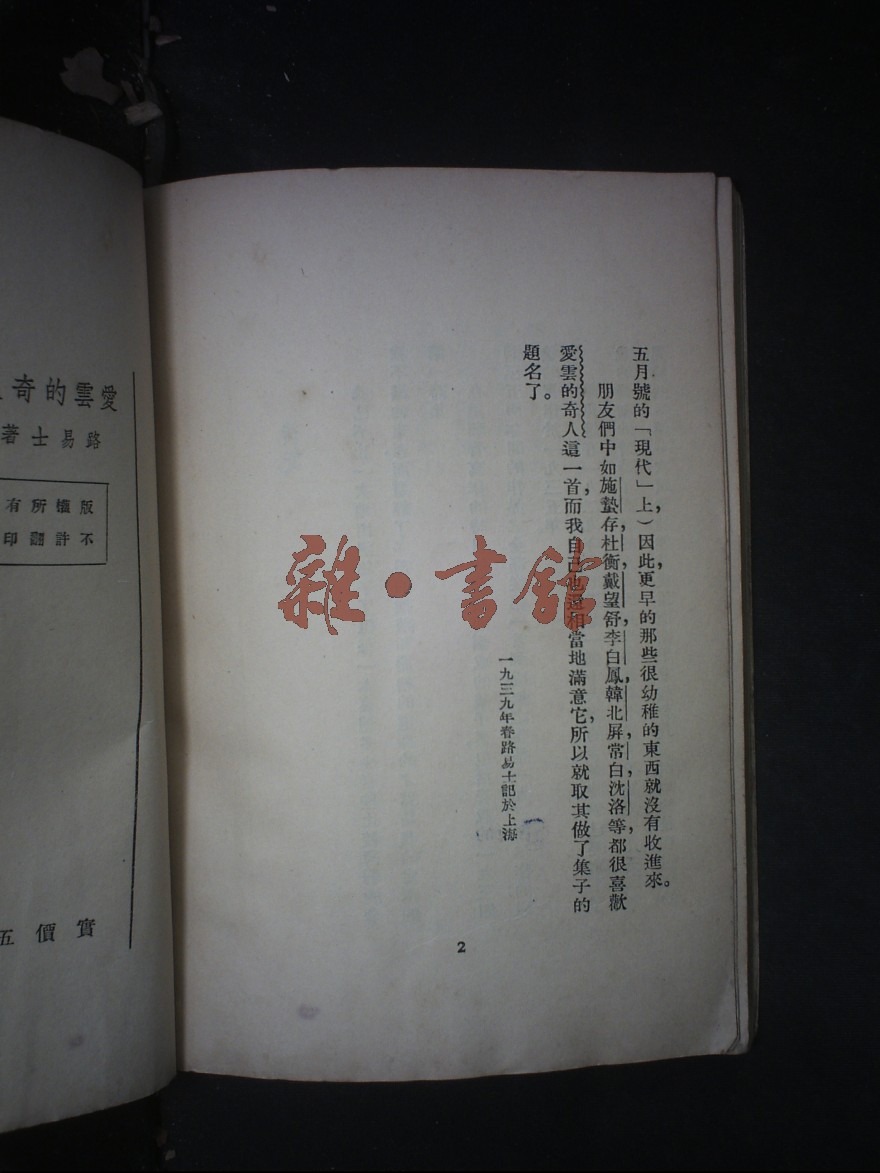 五月號的「現代」上，）因此，更早的那些很幼稚的東西就沒有收進來。
朋友們中如施蟄存，杜衡，戴望舒，李白鳳，韓北屏，常白，沈洛等，都很喜歡
愛雲的奇人這一首，而我自己也還相當地滿意它，所以就取其做了集子的
題名了。
一九三九年春路易士記於上海
2
雜·書館
愛雲的奇
路易士著
版權所有
不許翻印
實價五